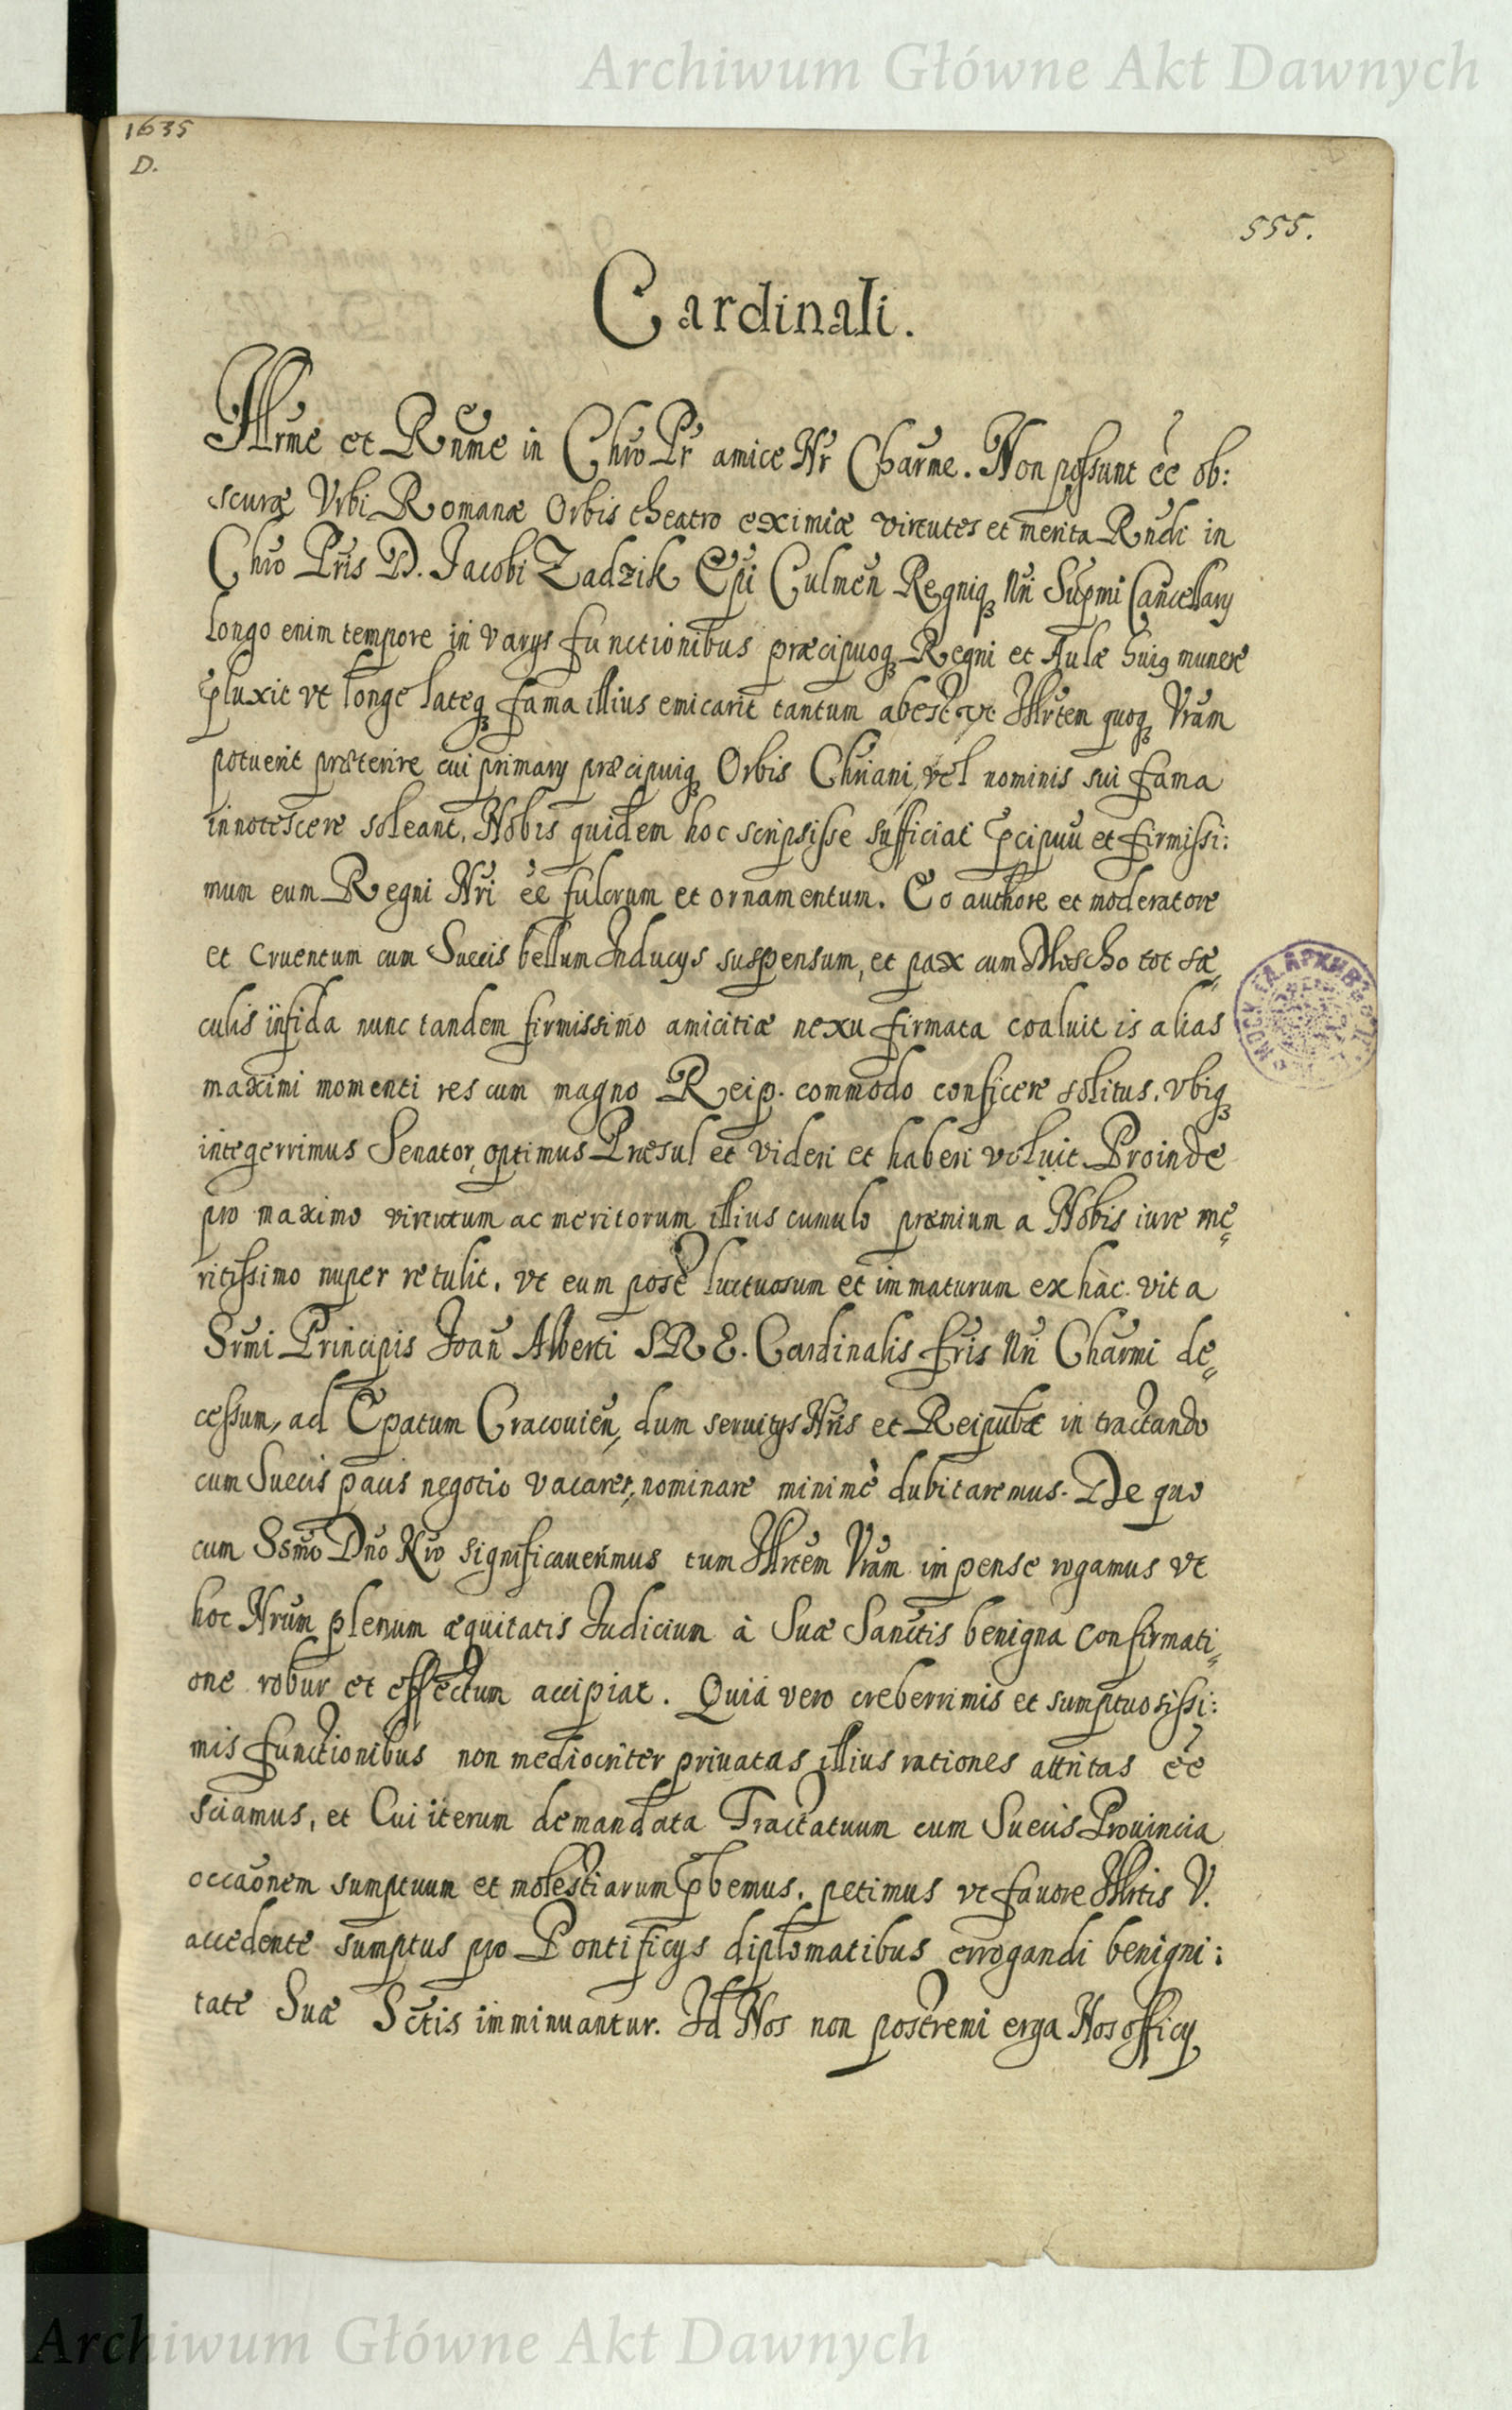 Archiwum Główne Akt Dawnych
1635
D.
555.
Cardinali.
Illrme et Rnme in Chro Pr amice Nr Charme. Non possunt ee ob:
scuræ Vrbi Romanæ Orbis theatro eximiæ virtutes et merita Rndi in
Chro Pris D. Jacobi Zadzik Epi Culmen Regniq Nri Supmi Cancellarij
longo enim tempore in varijs functionibus præcipuoq Regni et Aulæ huiq munere
pluxit vt longe lateq fama illius emicarit tantum abest vt Illrtem quoq Vram
potuerit præterire cui primarij præcipuiq Orbis Chriani, vel nominis sui fama
innotescere soleant. Nobis quidem hoc scripsisse sufficiat pcipuu et firmissi:
mum eum Regni Nri ee fulcrum et ornamentum. Eo authore et moderatore
et cruentum cum Suecis bellum Inducijs suspensum, et pax cum Moscho tot sæ„
culis infida nunc tandem firmissimo amicitiæ nexu firmata coaluit is alias
maximi momenti res cum magno Reip. commodo conficere solitus. Vbiq
integerrimus Senator, optimus Præsul et videri et haberi voluit. Proinde
pro maximo virtutum ac meritorum illius cumulo præmium a Nobis iure me„
ritissimo nuper retulit. vt eum post luctuosum et immaturum ex hac vita
Srmi Principis Joan Alberti S R E. Cardinalis fris Nri Charmi de„
cessum, ad Epatum Cracouien, dum seruitys Nris et Reipubæ in tractando
cum Suecis pacis negotio vacaret, nominare minimè dubitaremus. De quo
cum Ssmo Dno Nro significauerimus tum Illrtem Vram impense rogamus vt
hoc Nrum plenum æquitatis Judicium à Suæ Sanctis benigna confirmati„
one robur et effectum accipiat. Quia vero creberrimis et sumptuosissi:
mis functionibus non mediocriter priuatas illius rationes attritas ee
sciamus, et Cui iterum demandata Tractatuum cum Suecis Prouincia
occaonem sumptuum et molestiarum pbemus. petimus vt fauore Illrtis V.
accedente sumptus pro Pontificys diplomatibus errogandi benigni:
tate Suæ Sctis imminuantur. Id Nos non postremi erga Nos officij
Archiwum Główne Akt Dawnych